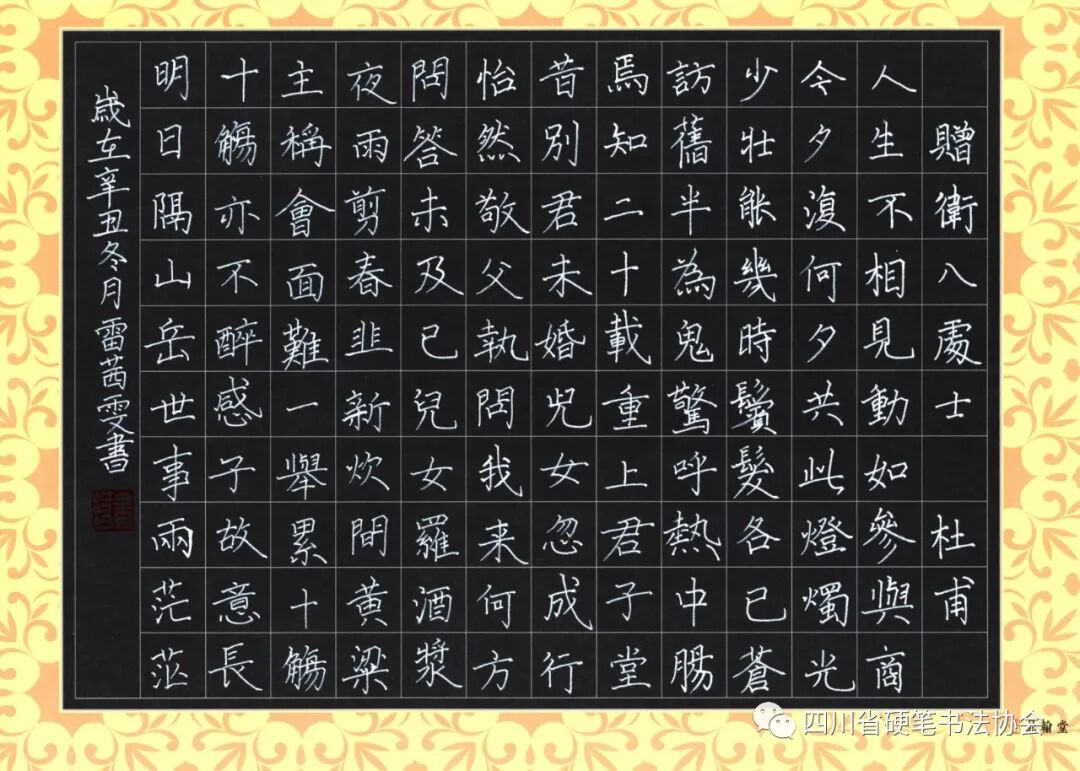 贈衛八處士 杜甫
人生不相見動如參與商
今夕復何夕共此燈燭光
少壯能幾時鬢髮各已蒼
訪舊半為鬼驚呼熱中腸
焉知二十載重上君子堂
昔別君未婚兒女忽成行
怡然敬父執問我来何方
問答未及已兒女羅酒漿
夜雨剪春韭新炊間黃粱
主稱會面難一舉累十觴
十觴亦不醉感子故意長
明日隔山岳世事兩茫茫
歲在辛丑冬月雷茜雯書
四川省硬笔书法协会
翰堂